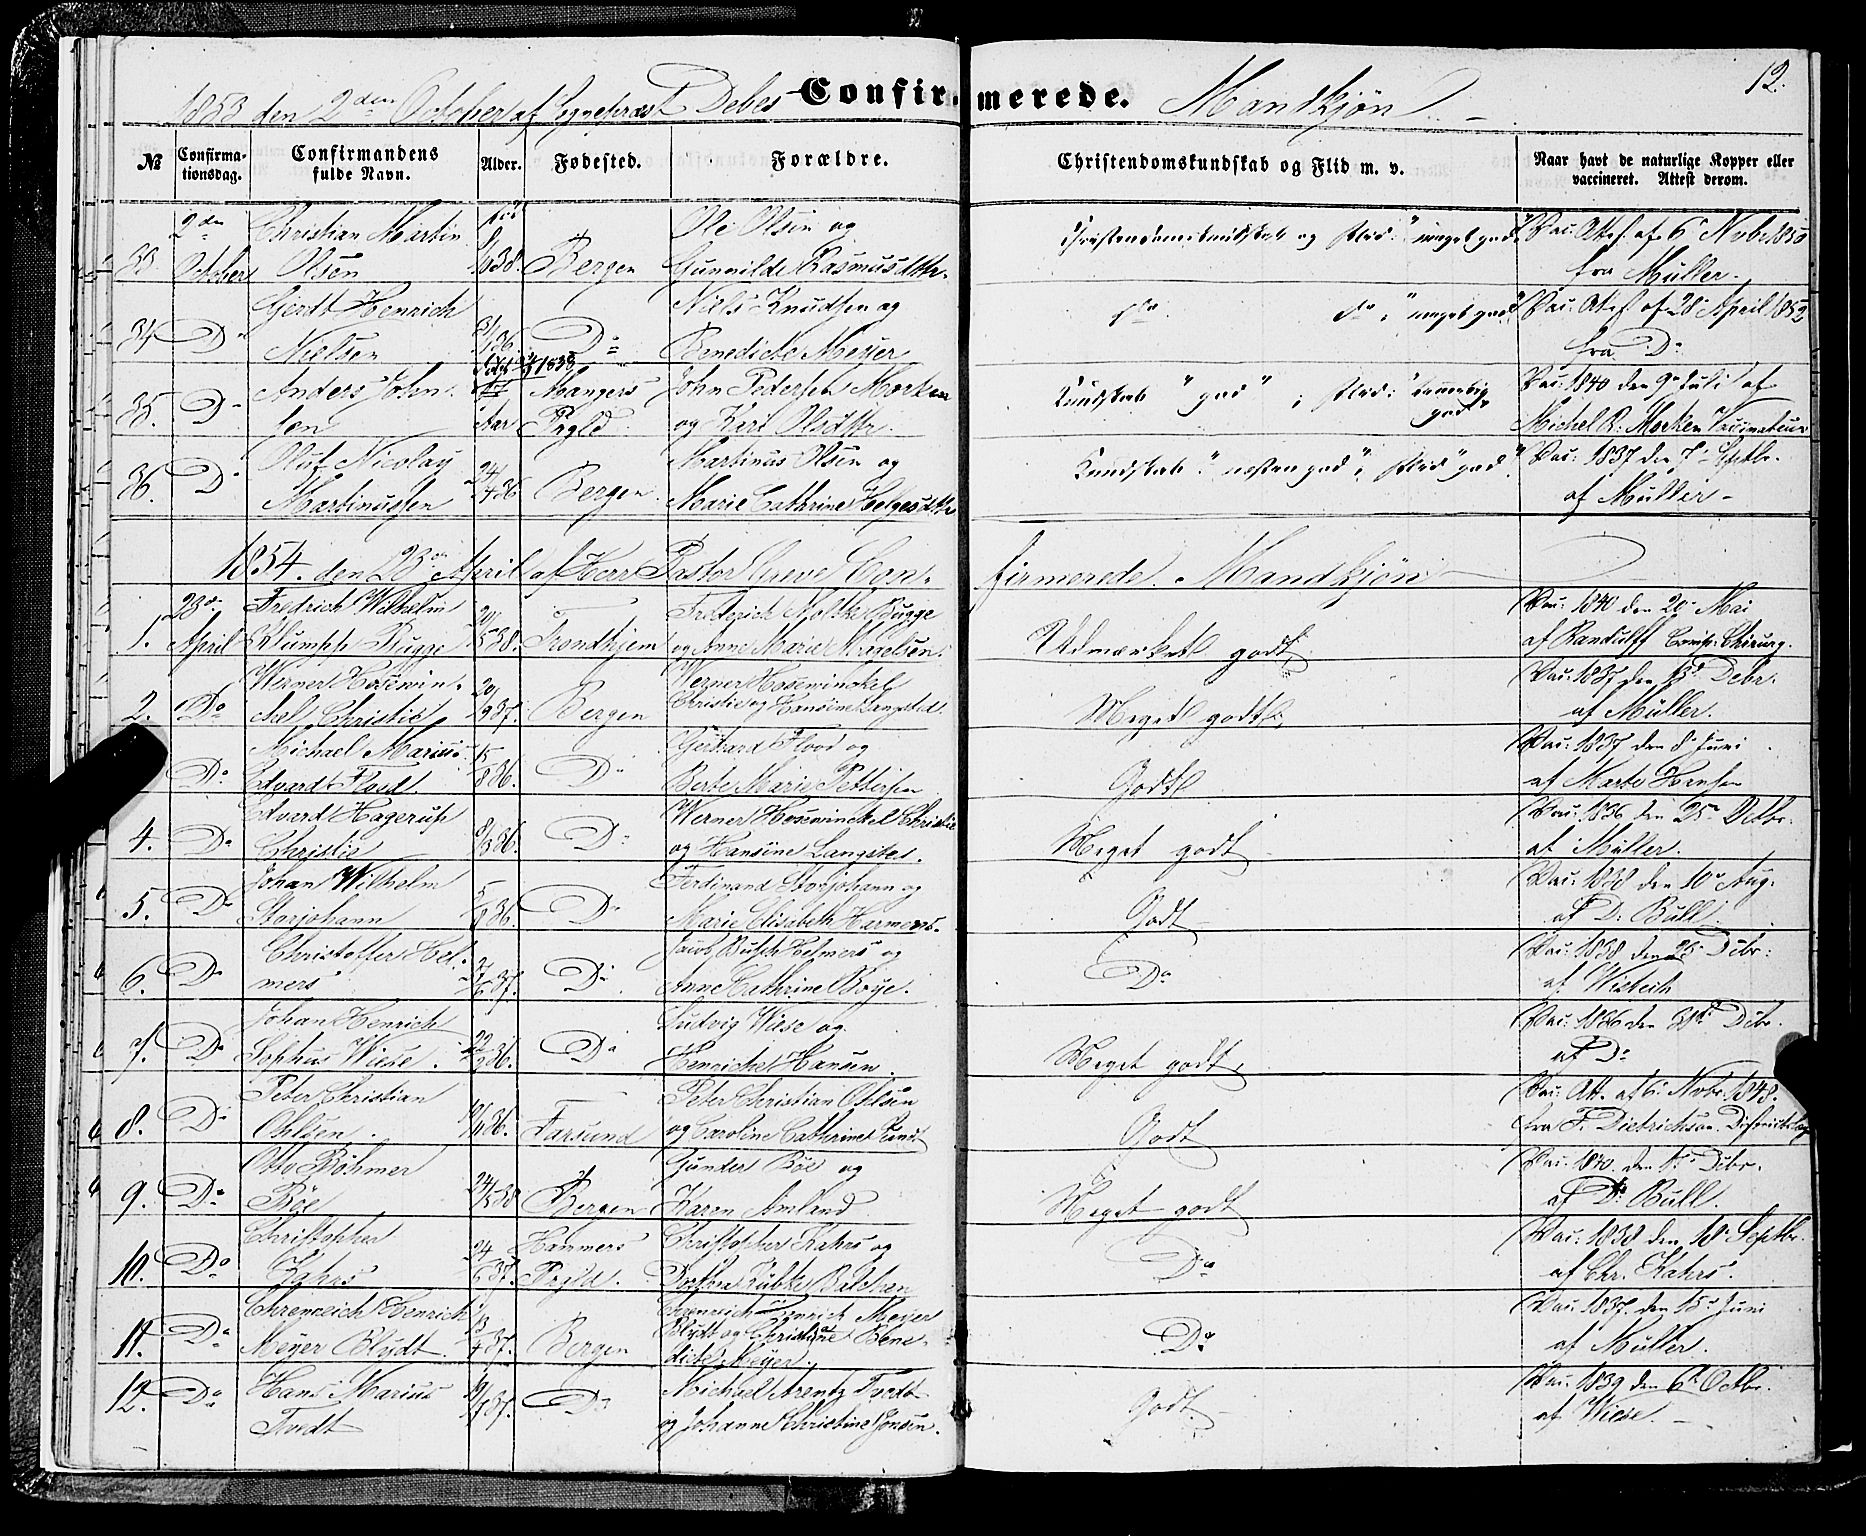 12.
1853 den 2den October af Sognepræst Debes Confirmerede. Mandkjøn
№ Confirmationsdag. Confirmandens fulde Navn. Alder. Fødested. Forældre. Christendomskundskab og Flid m. v. Naar havt de naturlige Kopper eller vaccineret. Attest derom.
33. 2den October Christian Martin Olsen Bergen Ole Olsen og Gunnilde Rasmusdttr. Christendomskundskab og Flid: "meget god" Vac: Attest af 6 Novbr 1850 fra Müller.
34 Do Gjerdt Henrich Nielsen Do Niels Knudsen og Benedicte Meyer do do "meget god" Vac: Attest af 28 April 1852 fra Do
35. Do Anders Johnsen Aar Mangers Prgld John Pedersen Morken og Kari Olsdttr. Kundskab "god", Flid: Vac: 1840 den 9 Juli af Michel R. Morken Vaccinateur
36. Do Oluf Nicolay Martinussen 24/4 36 Bergen Martinus Olsen og Marie Cathrine Helgesdttr Kundskab: "næsten god", Flid "god" Vac: 1837 den 7 Septbr. af Müller
1854. den 23de April af Herr Pastor Greve Confirmerede. Mandkjøn
1. 23de April Fredrich Wilhelm Klumpp Bugge 20/5 38. Trondhjem Friderich Moltke Bugge og Anne Marie Magelsen. Udmærket godt Vac: 1840 den 20 Mai af Randulff Comp: Chirurg.
2. Do Werner Hosewinckel Christie 20/9 37. Bergen Werner Hosewinckel Christie og Hansine Langsted Meget godt. Vac: 1837 den 13 Debr. af Müller.
Do Michael Marius Edvard Flood. 15/8 36. Do Gerhard Flood og Berte Marie Pettersen Godt Vac: 1837 den 8 Juni af Marte Hansen
4. Do Edvard Hagerup Christie 36. Do Werner Hosewinckel Christie og Hansine Langsted. Meget godt Vac: 1836 den 25 Octbr. af Müller.
5. Do Johan Wilhelm Storjohann 36. Do Ferdinand Storjohann og Marie Elisabeth Harmens. Godt Vac: 1838 den 10 Aug. af D: Bull
6. Do Christoffer Helmers 37. Do Jacob Butsch Helmers og Anne Cathrine Boye. Do Vac: 1838 den 26 Debr: af Wisbech
7. Do Johan Henrich Sophus Wiese. 22/9 36. Do Ludvig Wiese og Henrichel Hansen. Meget godt, Vac: 1836 den 31 Debr. af Do
8. Do Peter Christian Ohlsen. 36. Farsund Peter Christian Ohlsen og Caroline Cathrine Lund Godt Vac: Att. af 6 Novbr. 1848. fra F. Dietrichson, Districtslæge
9. Do Otto Böhmer Böe 24/5 38 Bergen Gunder Böe og Karen Amland Meget godt Vac: 1840. den 1 Debr. af Dr Bull.
10. Do Christopher Kahrs 24/6 37. Hammers Prgld. Christopher Kahrs og Dorthea Lübke Balchen Do Vac: 1838 den 18 Septbr. af Chr. Kahrs.
11. Do Ehrenreich Henrich Meyer Blydt. 13/4 37. Bergen Ehrenreich Henrich Meyer Blydt og Christine Benedicte Meyer. Do Vac: 1837. den 15 Juni af Müller.
12. Do Hans Marius Tvedt 37. Do Michael Arentz Tvedt og Johanne Christine Jonsen. Godt. Vac: 1839 den 6 Octbr. af Wiese.